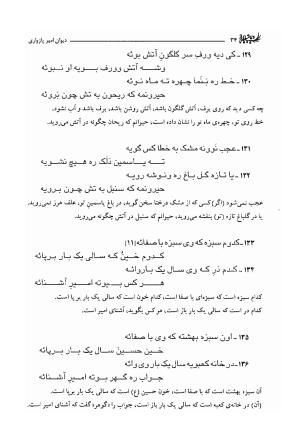 ۳۴ دیوان امیر پازواری
۱۲۹- کی دیه ورفِ سر گلگون آتش بوئه
وشـــه آتش وورف بـــویه او نــبوئه
۱۳۰- خط ره بَنما چهره ته ماه نوئه
حیرونمه که ریحون به تش چون بَروئه
چه کسی دید که روی برف، آتش گلگون باشد، آتش روشن باشد، برف باشد و آب نشود.
خط روی تو، چهره‌ی ماه نو را نشان داده است، حیرانم که ریحان چگونه در آتش می‌روید.
۱۳۱- عجب نَوونه مشک به خطا کس گویه
تـــه یـــاسمین دَلک ره هیچ نشویه
۱۳۲- یا تازه گل باغ ره ونـوشه رویـه
حیرونمه که سنبل به تش چون برویه
عجب نمی‌شود (اگر) کسی که از مشک درختا سخن گوید، در باغ یاسمنِ تو، علف هرز نمی‌روید.
یا در گلباغ تازه (تو) بنفشه می‌روید، حیرانم که سنبل در آتش چگونه می‌روید.
۱۳۳- کدوم سبزه که وی سبزه با صفائه (۱۱)
کدوم خین که سالی یک بار برپائه
۱۳۴- کدوم دَر که وی سال یک باروائه
هر کس بپوته امیر آشنائه
کدام سبزه است که سبزه‌ای با صفا است، کدام خون است که سالی یک بار بر پا است.
کدام در است که سالی یک بار باز است، هر کس بگوید، آشنای امیر است.
۱۳۵- اون سبزه بهشته که وی با صفائه
خین حسین سال یک بار برپائه
۱۳۶- در خانه کعبویه سال یک باروی وائه
جواب ره گهر بوته امیر آشنائه
آن سبزه بهشت است که با صفا است، خون حسین (ع) است که سالی یک بار بر پا است.
(آن) در خانه‌ی کعبه است که سالی یک بار باز است، جواب را «گوهر» گفت که آشنای امیر است.